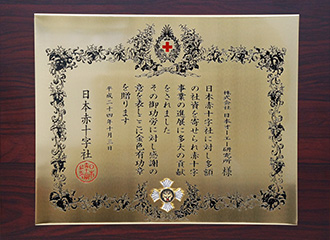 株式会社 日本オートメ研究所 様
日本赤十字社に対し多額
の社資を寄せられ赤十字
事業の進展に多大の貢献
をされました
その御功労に対し感謝の
意を表しここに金色有功章
を贈ります
平成二十四年十月三日
日本赤十字社